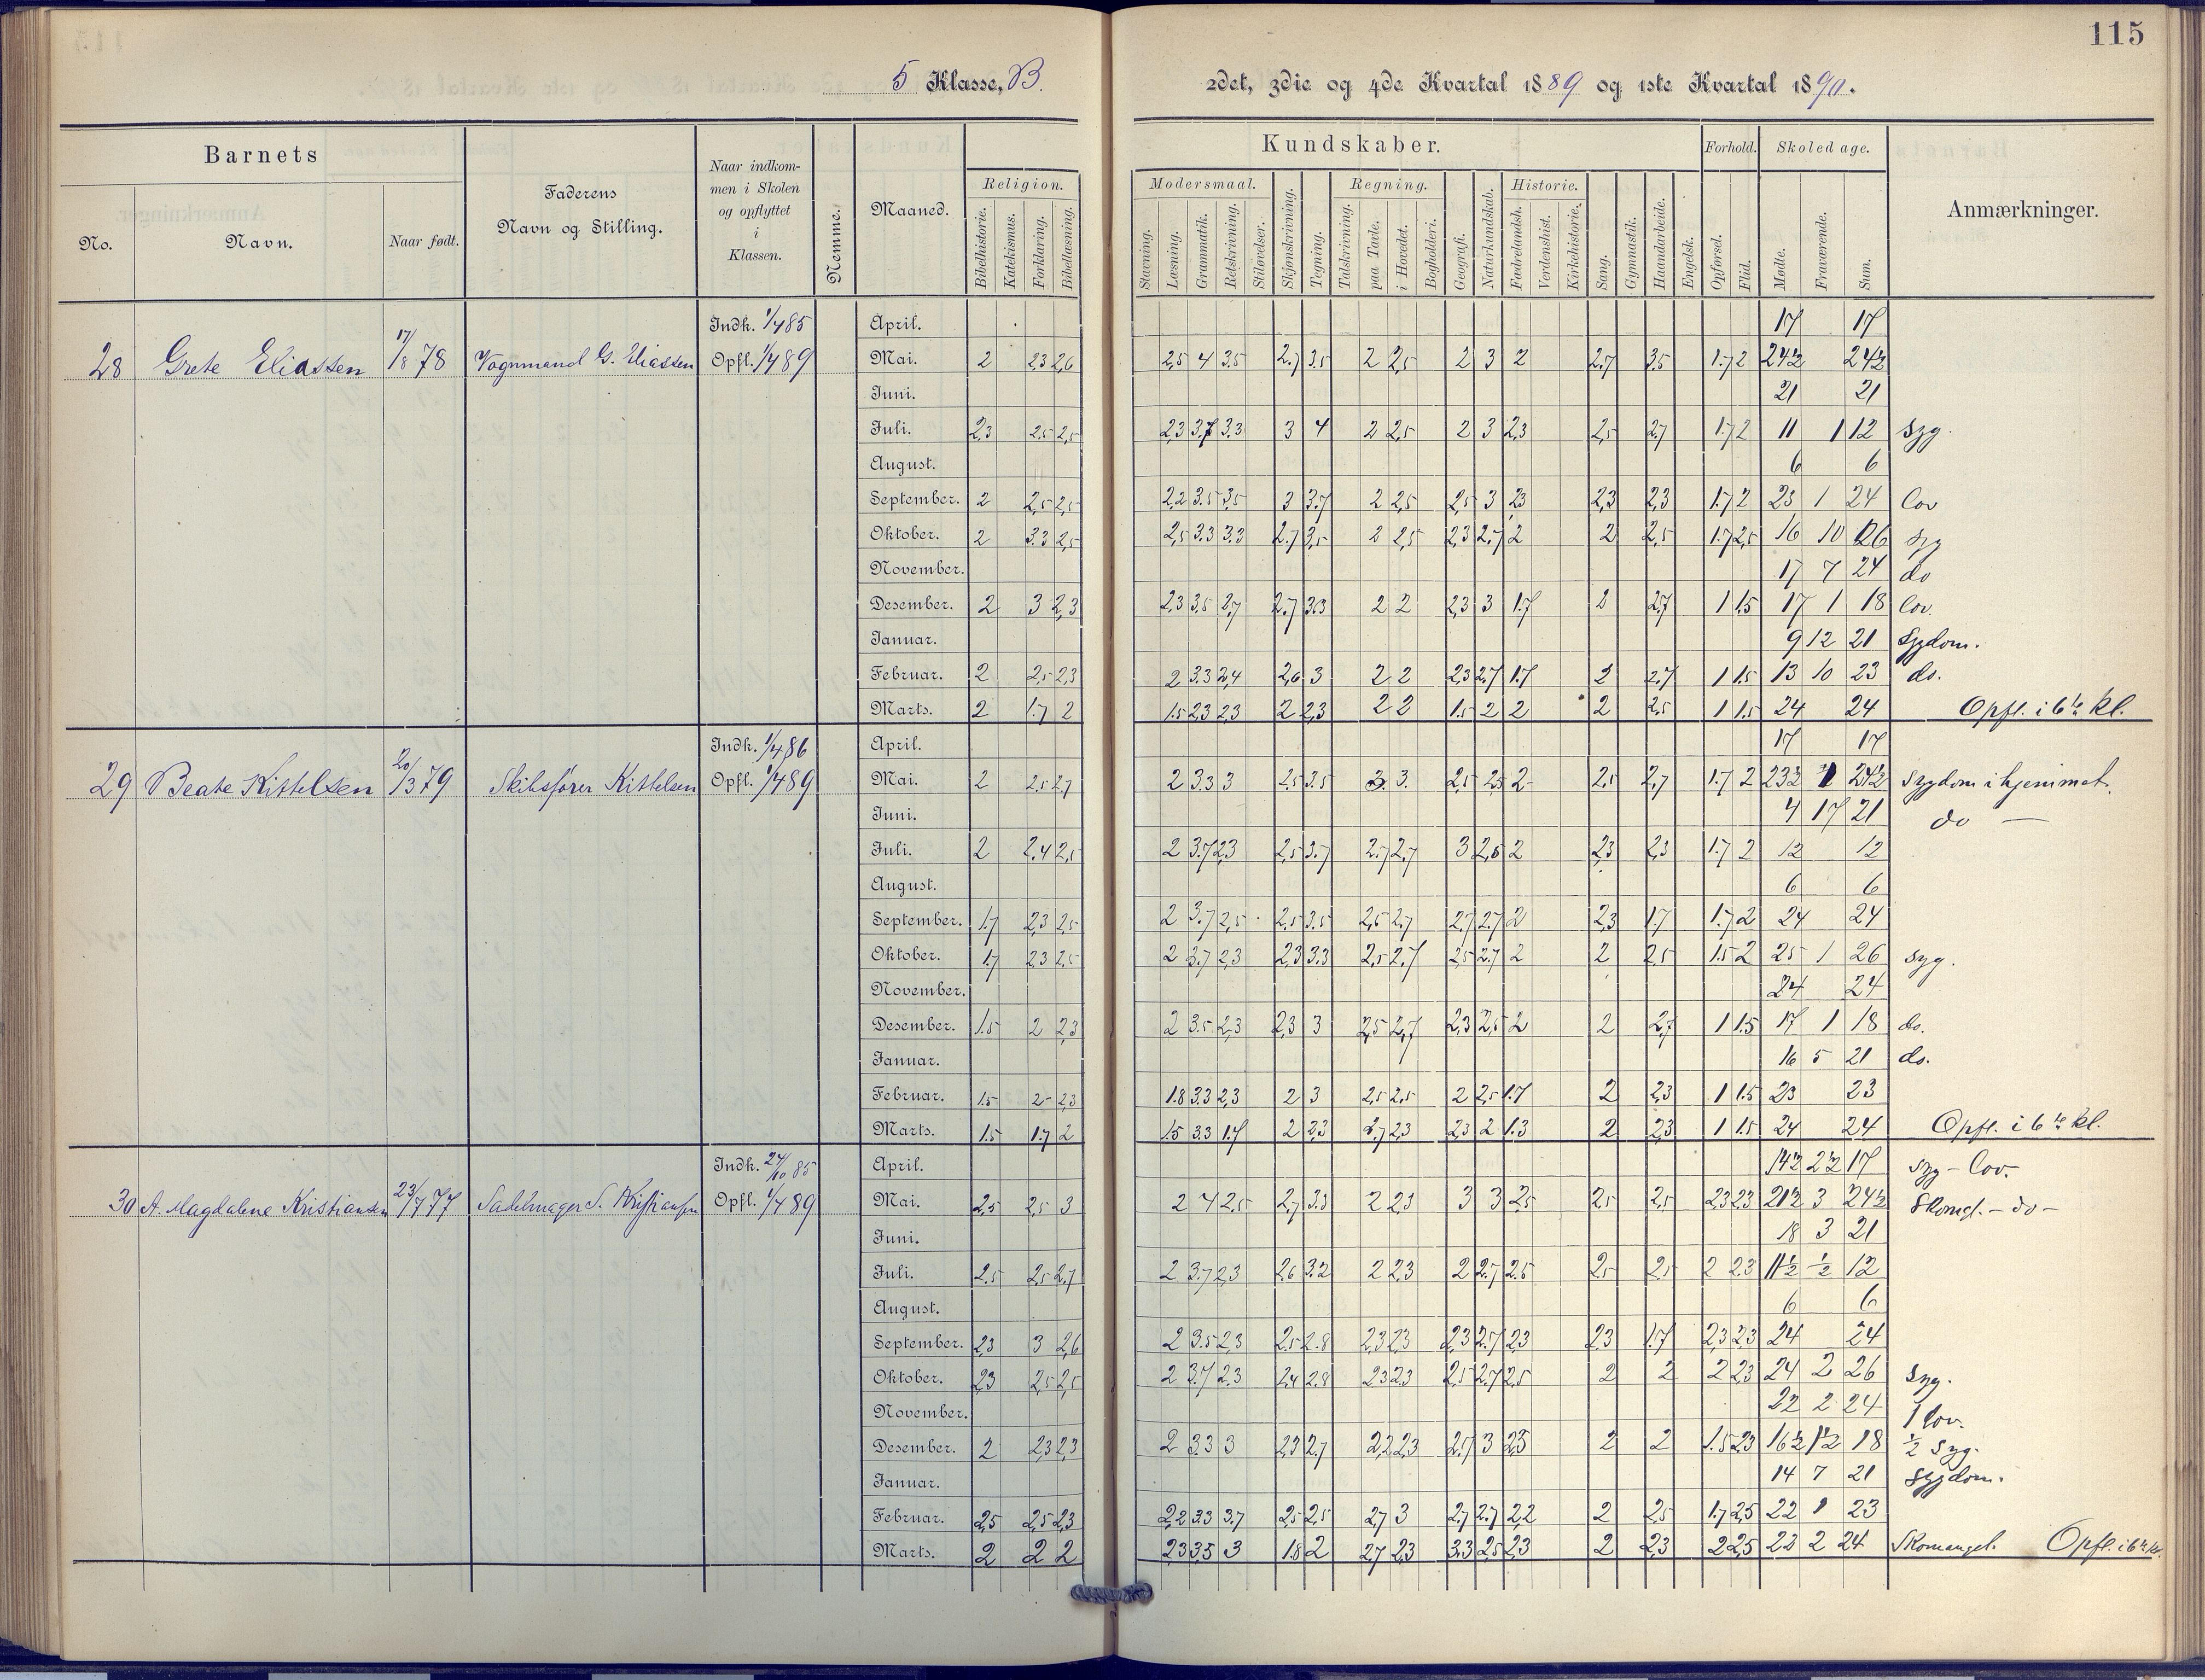 115
5 Klasse, B.
2det, 3die og 4de Kvartal 1889 og 1ste Kvartal 1890.
Barnets
No.
Navn.
Naar født.
Faderens
Navn og Stilling.
Naar indkom-
men i Skolen
og opflyttet
i
Klassen.
Nemme.
Maaned.
Kundskaber.
Religion.
Bibelhistorie.
Katekismus.
Forklaring.
Bibellæsning.
Modersmaal.
Stavning.
Læsning.
Grammatik.
Retskrivning.
Stiløvelser.
Skjønskrivning.
Tegning.
Regning.
Talskrivning.
paa Tavle.
i Hovedet.
Bogholderi.
Geografi.
Naturkundskab.
Historie.
Fædrelandsh.
Verdenshist.
Kirkehistorie.
Sang.
Gymnastik.
Haandarbeide.
Engelsk.
Forhold.
Opførsel.
Flid.
Skoledage.
Mødte.
Fraværende.
Sum.
Anmærkninger.
28 Grete Eliassen 17/8 78 Vognmand G. Eliassen
Indk. 1/4 85
Opfl. 1/4 89
April. 17 17
Mai. 2 2,3 2,6 2,5 4 3.5 2.7 3.5 2 2,5 2 3 2 2,7 3.5 1.7 2 24½ 24½
Juni. 21 21
Juli. 2,3 2,5 2,5 2,3 3.7 3.3 3 4 2 2,5 2 3 2,3 2,5 2,7 1.7 2 11 1 12 Syg.
August. 6 6
September. 2 2,5 2,5 2,2 3.5 3,5 3 3.7 2 2,5 2,5 3 2,3 2,3 2,3 1.7 2 23 1 24 Lov
Oktober. 2 3.3 2,5 2,5 3.3 3.3 2.7 3,5 2 2,5 2,3 2.7 2 2 2,5 1.7 2,5 16 10 26 Syg
November. 17 7 24 do
Desember. 2 3 2,3 2,3 3.5 2,7 2,7 3.3 2 2 2,3 3 1.7 2 2,7 1 1.5 17 1 18 Lov.
Januar. 9 12 21 Sygdom.
Februar. 2 2,5 2,3 2 3.3 2,4 2,6 3 2 2 2,3 2.7 1.7 2 2.7 1 1.5 13 10 23 do.
Marts. 2 1.7 2 1.5 2,3 2,3 2 2,3 2 2 1.5 2 2 2 2,5 1 1.5 24 24 Opfl. i 6te kl.
29 Beate Kittelsen 20/3 79 Skibsfører Kittelsen
Indk. 1/4 86
Opfl. 1/4 89
April. 17 17
Mai. 2 2,5 2,7 2 3.3 3 2,5 3.5 3. 3. 2,5 2,5 2 2,5 2,7 1.7 2 23½ 1 24½ Sygdom i hjemmet.
Juni. 4 17 21 do —
Juli. 2 2,4 2,5 2 3.7 2,3 2,5 3.7 2.7 2,7 3 2,5 2 2,3 2,3 1.7 2 12 12
August. 6 6
September. 1.7 2,3 2,5 2 3.7 2,5 2,5 3.5 2,5 2,7 2,7 2.7 2 2,3 1.7 1.7 2 24 24
Oktober. 1.7 2,3 2,5 2 3.7 2,3 2,3 3.3 2,5 2,7 2,5 2.7 2 2 2,5 1.5 2 25 1 26 Syg.
November. 24 24
Desember. 1.5 2 2,3 2 3.5 2,3 2,3 3 2,5 2,7 2,3 2,5 2 2 2,7 1 1.5 17 1 18 do.
Januar. 16 5 21 do.
Februar. 1.5 2 2,3 1.8 3.3 2,3 2 3 2,5 2,5 2 2,5 1.7 2 2,3 1 1.5 23 23
Marts. 1.5 1.7 2 1.5 3.3 1.7 2 2,3 2,3 2,3 2 1.3 2 2,3 1 1.5 24 24 Opfl. i 6te kl.
30 A. Magdalene Kristiansen 23/7 77 Sadelmager S. Kristiansen
Indk. 24/10 85
Opfl. 1/4 89
April. 14½ 2½ 17 Syg - Lov.
Mai. 2,5 2,5 3 2 4 2.5 2,7 3.3 2 2,3 3 3 2,5 2,5 2,5 2,3 2,3 21½ 3 24½ Skomgl. - do -
Juni. 18 3 21
Juli. 2.5 2,5 2,7 2 3.7 2,3 2,6 3.2 2 2,3 2 2.7 2.5 2,5 2,5 2 2.3 11½ ½ 12
August. 6 6
September. 2,3 3 2,6 2 3.5 2,3 2,5 2.8 2,3 2,3 2,3 2.7 2,3 2,3 1.7 2,3 2,3 24 24
Oktober. 2,3 2,5 2,5 2 3.7 2.3 2,4 2.8 2,3 2,3 2,5 2.7 2,5 2 2 2 2,3 24 2 26 Syg.
November. 22 2 24 1 Lov.
Desember. 2 2,3 2,3 2 3.3 3 2,3 2,7 2,2 2,3 2,7 3 2,5 2 2 1.5 2,3 16½ 1½ 18 ½ Syg.
Januar. 14 7 21 Sygdom.
Februar. 2,5 2,5 2,3 2,2 3.3 3.7 2,5 2,5 2,7 3 2.7 2.7 2,2 2 2,5 1.7 2,5 22 1 23
Marts. 2 2 2 2,3 3.5 3 1.8 2 2,7 2,3 3.3 2,5 2,3 2 2,3 2 2,5 22 2 24 Skomangel. Opfl. i 6te kl.